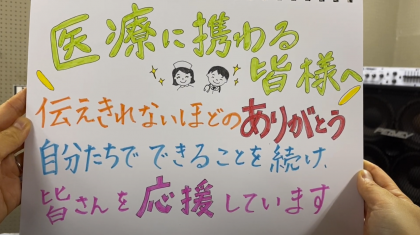 医療に携わる
皆様へ
伝えきれないほどのありがとう
自分たちでできることを続け、
皆さんを応援しています